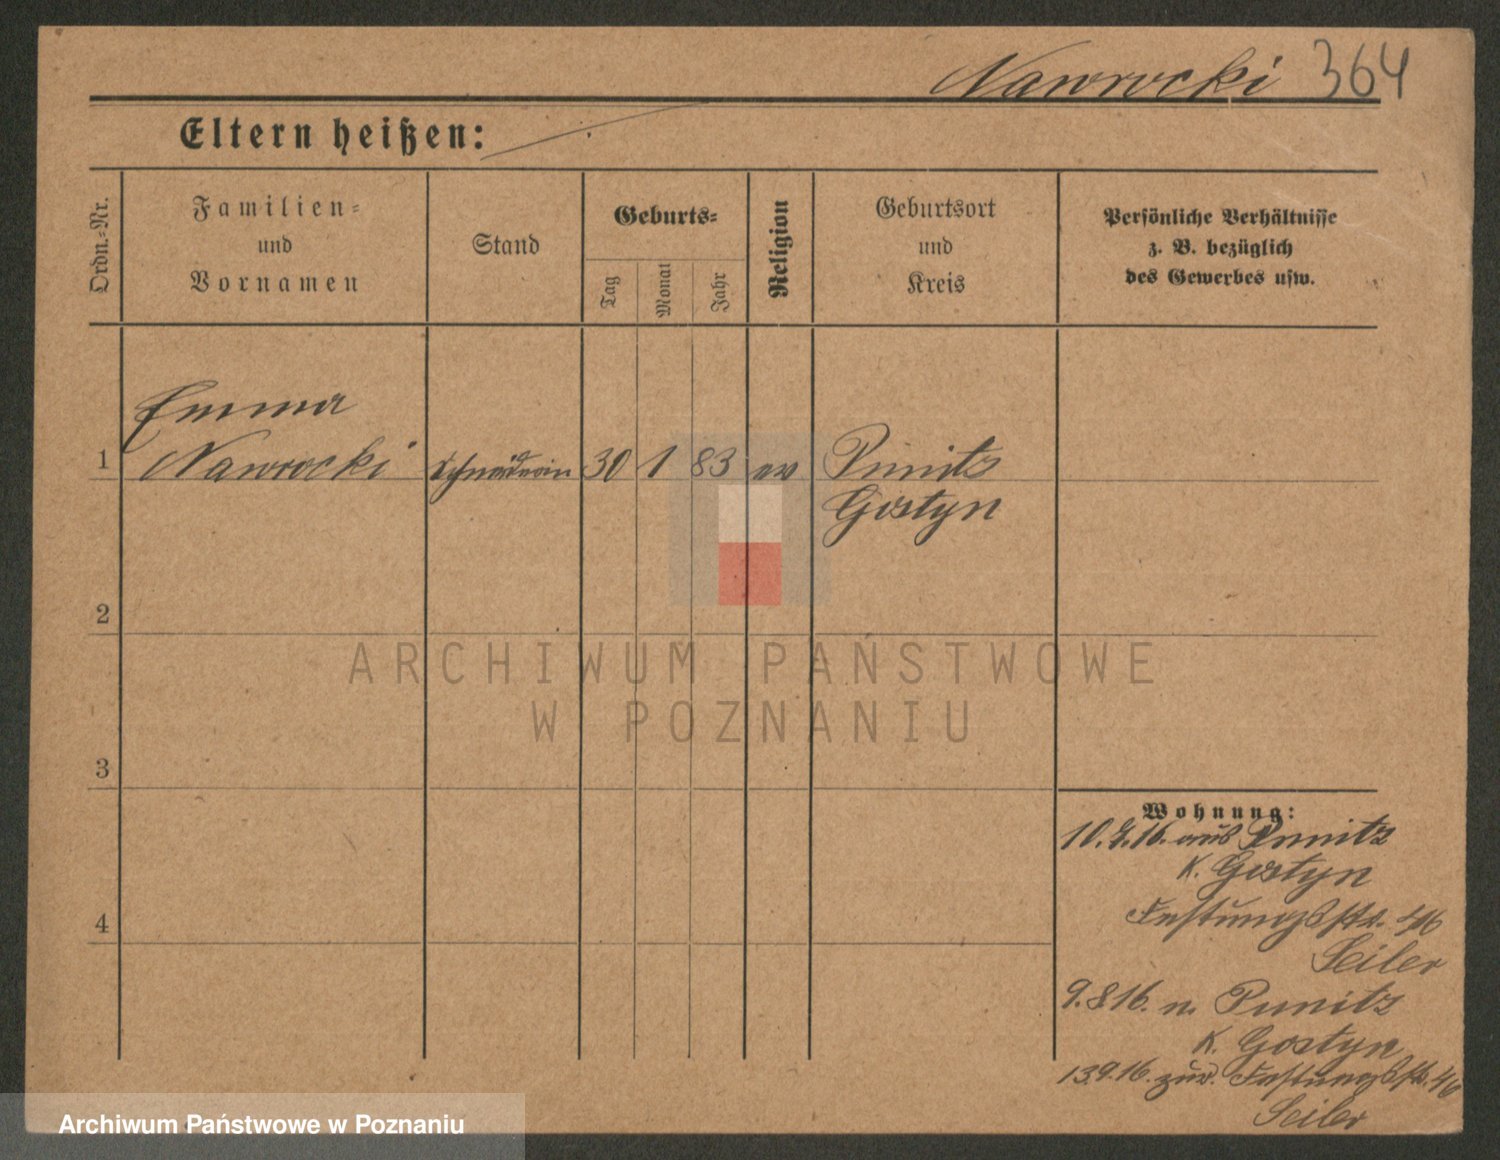 Nawrocki 364
Eltern heißen:
Ordn.-Nr.
Familien-
und
Vornamen
Stand
Geburts-
Tag
Monat
Jahr
Religion
Geburtsort
und
Kreis
Persönliche Verhältnisse
z. B. bezüglich
des Gewerbes usw.
Emma
1 Nawrocki Schneiderin 30 1 83 ev Punitz
Gostyn
2
3
4
ARCHIWUM PAŃSTWOWE
W POZNANIU
Wohnung:
10. 16. aus Punitz
K. Gostyn
Festungsstr. 46
Seiler
9.8 16. n. Punitz
K. Gostyn
13.9.16. zur. Festungsstr. 46
Seiler
Archiwum Państwowe w Poznaniu